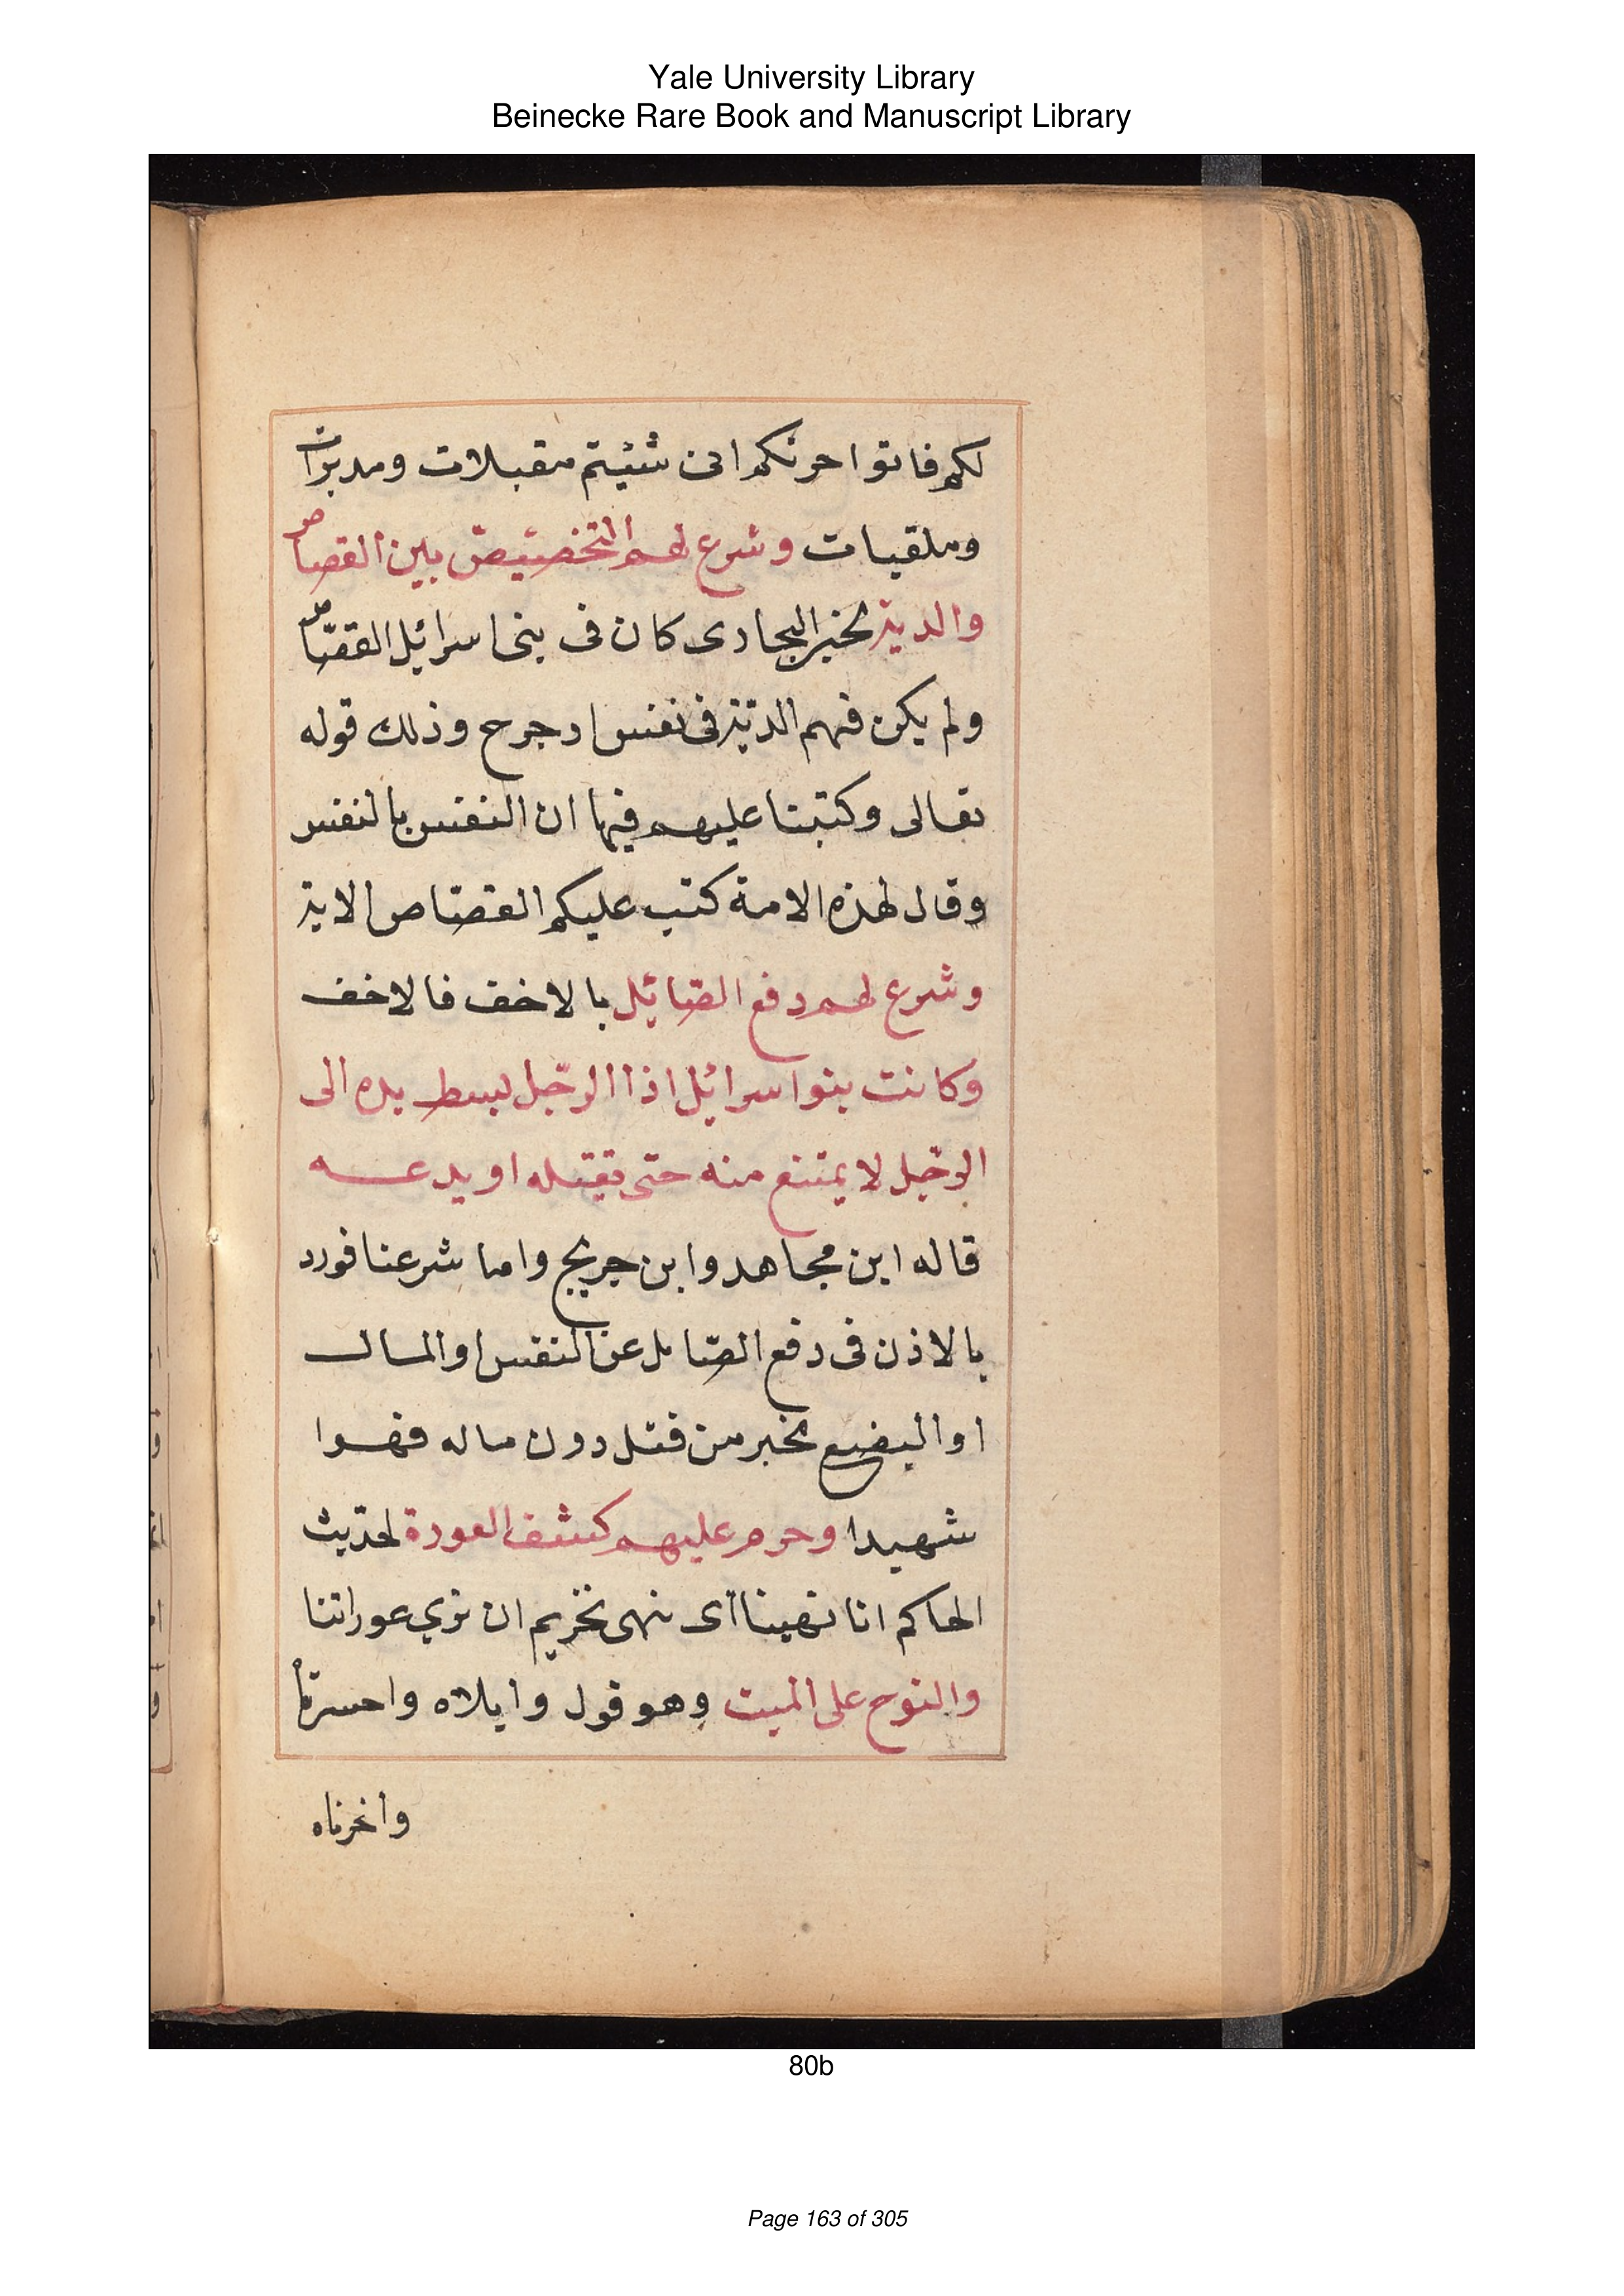 Yale University Library
Beinecke Rare Book and Manuscript Library
لكم فاتوا حرثكم انى شئيتم مقبلات ومدبرات
وملقيات وشرع لهم التخصيص بين القصاص
والدية لخبر البخارى كان فى بنى اسرائيل القصّاص
ولم يكن فيهم الديّة فى نفس او جرح وذلك قوله
تعالى وكتبنا عليهم فيها ان النفس بالنفس
وقال لهذه الامة كتب عليكم القصّاص الاية
وشرع لهم دفع الصّائل بالاخف فالاخف
وكانت بنوا سرائيل اذا الرّجل بسط يده الى
الرّجل لا يمتنع منه حتى يقتله او يدعه
قاله ابن مجاهد وابن جريج واما شرعنا فورد
بالاذن فى دفع الصّايل عن النفس او المال
او البضع بخبر من قتل دون ماله فهوا
شهيدا وحرم عليهم كشف العورة لحديث
الحاكم انا نهينا اى نهى تحريم ان نري عوراتنا
والنوح على الميت وهو قول وايلاه واحسرتاه
واخرناه
80b
Page 163 of 305